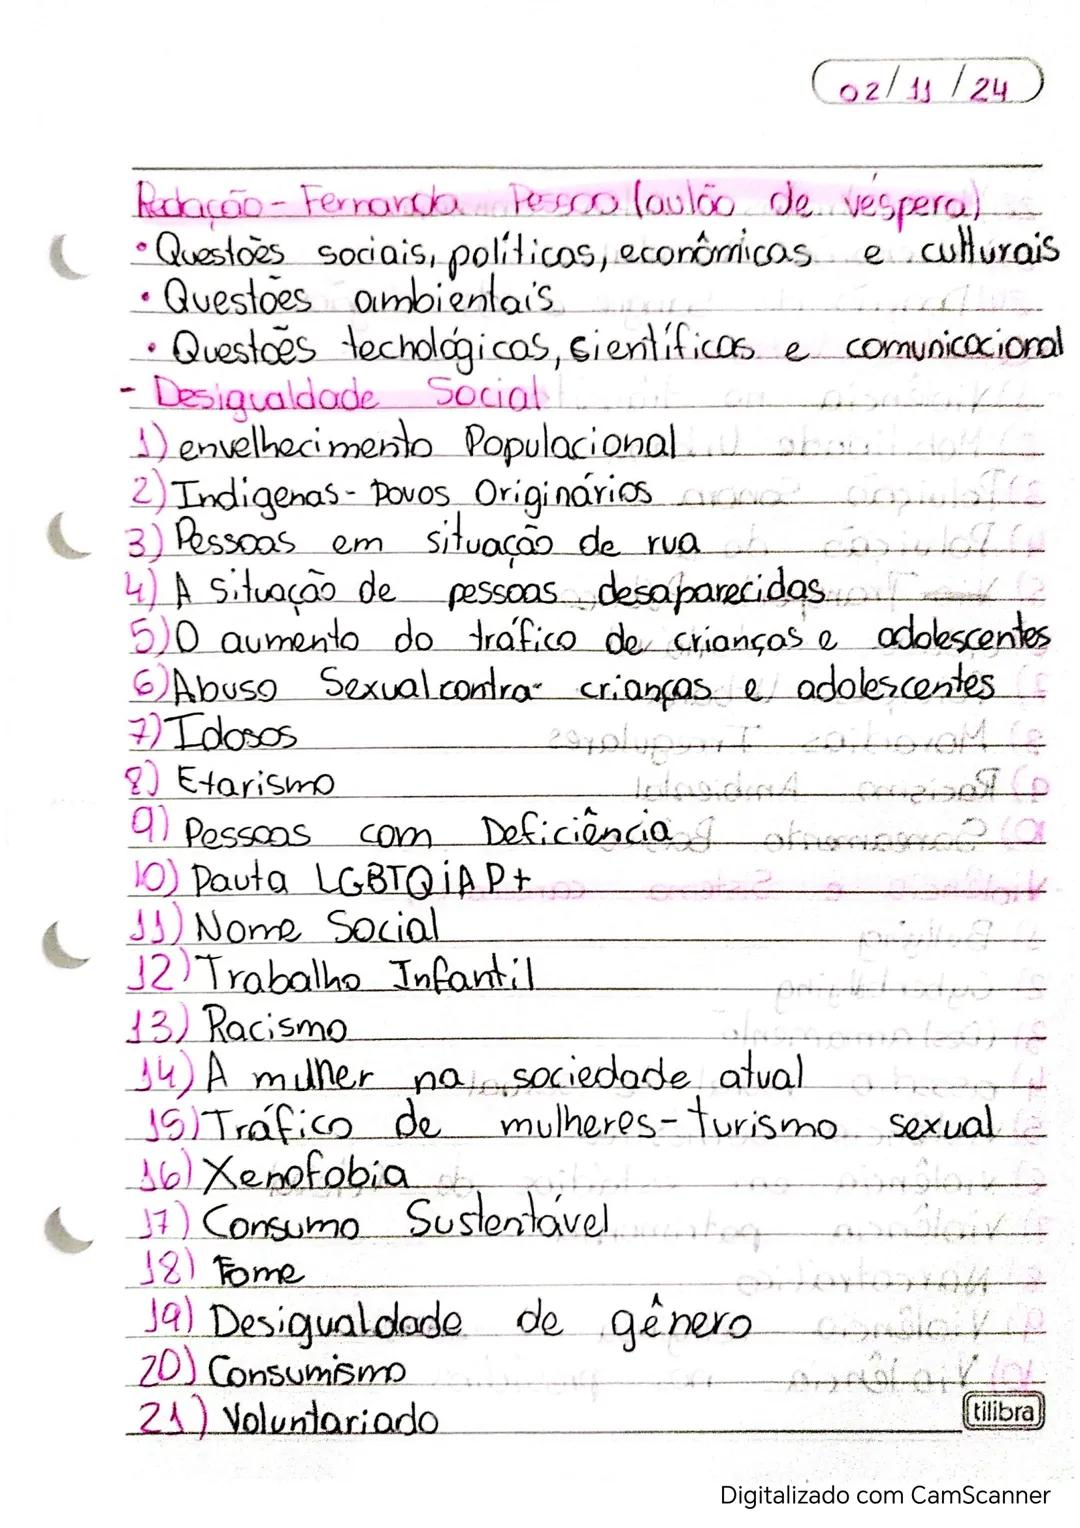 02/11/24
Redação - Fernanda Pessoa (aulão de véspera)
• Questões sociais, políticas, econômicas e culturais
• Questões ambientais
• Questões techológicas, científicas e comunicacional
- Desigualdade Social
1) envelhecimento Populacional
2) Indigenas - Povos Originários
3) Pessoas em situação de rua
4) A situação de pessoas desaparecidas
5) O aumento do tráfico de crianças e adolescentes
6) Abuso Sexual contra crianças e adolescentes
7) Idosos
8) Etarismo
9) Pessoas com Deficiência
10) Pauta LGBTQiAP+
11) Nome Social
12) Trabalho Infantil
13) Racismo
14) A mulher na sociedade atual
15) Tráfico de mulheres - turismo sexual
16) Xenofobia
17) Consumo Sustentável
18) Fome
19) Desigualdade de gênero
20) Consumismo
21) Voluntariado
tilibra
Digitalizado com CamScanner